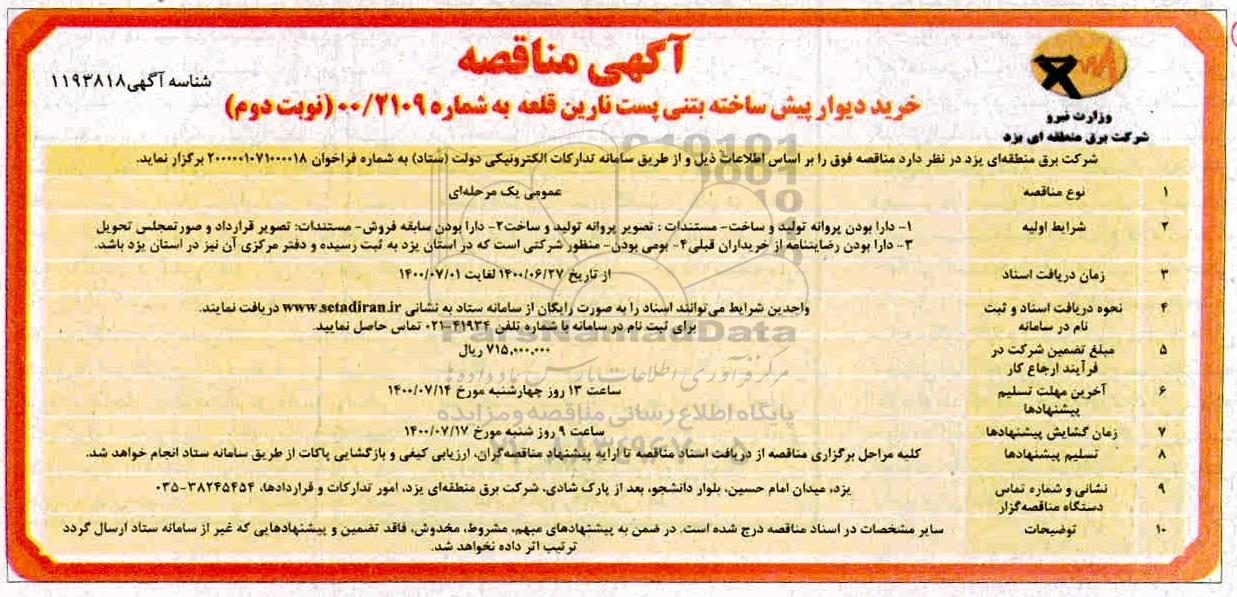 آگهی مناقصه
شناسه آگهی ۱۱۹۳۸۱۸
خرید دیوار پیش ساخته بتنی پست نارین قلعه به شماره ۰۰/۲۱۰۹ (نوبت دوم)
وزارت نیرو
شرکت برق منطقه ای یزد
شرکت برق منطقه‌ای یزد در نظر دارد مناقصه فوق را بر اساس اطلاعات ذیل و از طریق سامانه تدارکات الکترونیکی دولت (ستاد) به شماره فراخوان ۲۰۰۰۰۰۱۰۷۱۰۰۰۰۱۸ برگزار نماید.
۱ نوع مناقصه عمومی یک مرحله‌ای
۲ شرایط اولیه ۱- دارا بودن پروانه تولید و ساخت- مستندات : تصویر پروانه تولید و ساخت ۲- دارا بودن سابقه فروش- مستندات: تصویر قرارداد و صورتمجلس تحویل
۳- دارا بودن رضایتنامه از خریداران قبلی ۴- بومی بودن- منظور شرکتی است که در استان یزد به ثبت رسیده و دفتر مرکزی آن نیز در استان یزد باشد.
۳ زمان دریافت اسناد از تاریخ ۱۴۰۰/۰۶/۲۷ لغایت ۱۴۰۰/۰۷/۰۱
۴ نحوه دریافت اسناد و ثبت نام در سامانه واجدین شرایط می‌توانند اسناد را به صورت رایگان از سامانه ستاد به نشانی www.setadiran.ir دریافت نمایند.
برای ثبت نام در سامانه با شماره تلفن ۴۱۹۳۴-۰۲۱ تماس حاصل نمایید.
۵ مبلغ تضمین شرکت در فرآیند ارجاع کار ۷۱۵,۰۰۰,۰۰۰ ریال
۶ آخرین مهلت تسلیم پیشنهادها ساعت ۱۳ روز چهارشنبه مورخ ۱۴۰۰/۰۷/۱۴
۷ زمان گشایش پیشنهادها ساعت ۹ روز شنبه مورخ ۱۴۰۰/۰۷/۱۷
۸ تسلیم پیشنهادها کلیه مراحل برگزاری مناقصه از دریافت اسناد مناقصه تا ارایه پیشنهاد مناقصه‌گران، ارزیابی کیفی و بازگشایی پاکات از طریق سامانه ستاد انجام خواهد شد.
۹ نشانی و شماره تماس دستگاه مناقصه‌گزار یزد، میدان امام حسین، بلوار دانشجو، بعد از پارک شادی، شرکت برق منطقه‌ای یزد، امور تدارکات و قراردادها، ۳۸۲۴۵۴۵۴-۰۳۵
۱۰ توضیحات سایر مشخصات در اسناد مناقصه درج شده است. در ضمن به پیشنهادهای مبهم، مشروط، مخدوش، فاقد تضمین و پیشنهادهایی که غیر از سامانه ستاد ارسال گردد
ترتیب اثر داده نخواهد شد.
ParsNamadData
مرکز فرآوری اطلاعات پارس نماد داده ها
پایگاه اطلاع رسانی مناقصه و مزایده